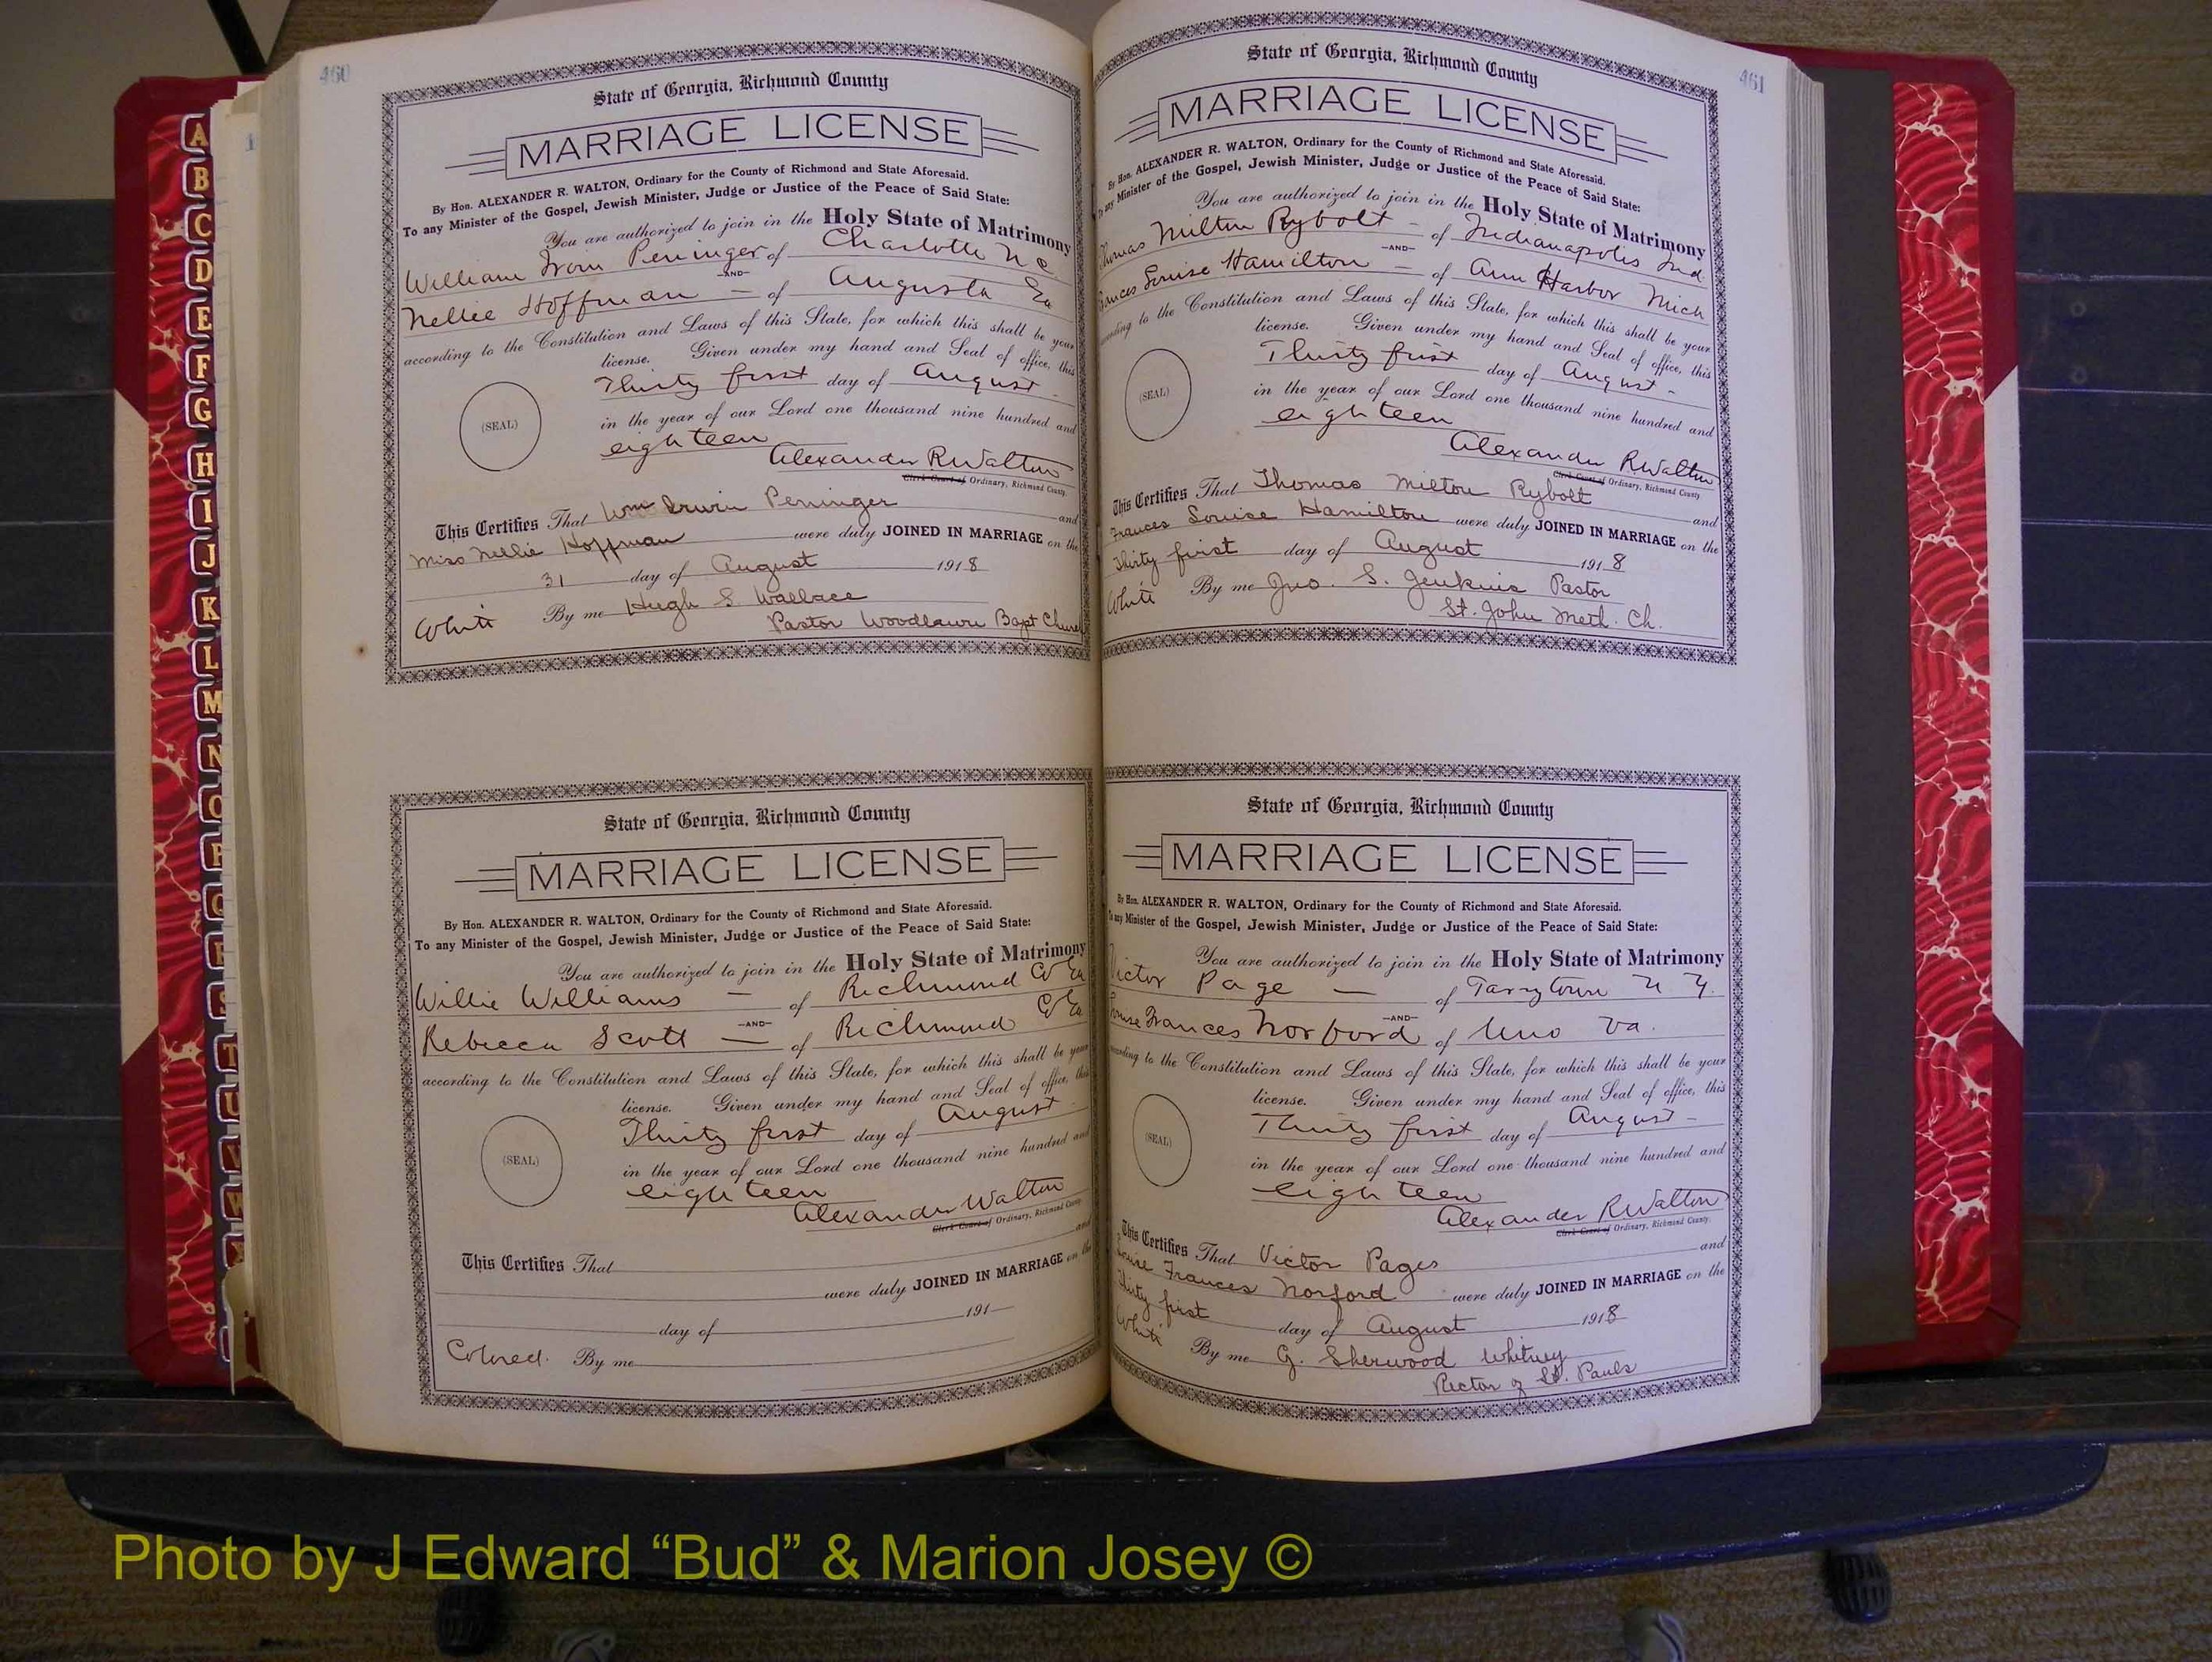 460
State of Georgia, Richmond County
MARRIAGE LICENSE
By Hon. ALEXANDER R. WALTON, Ordinary for the County of Richmond and State Aforesaid.
To any Minister of the Gospel, Jewish Minister, Judge or Justice of the Peace of Said State:
You are authorized to join in the Holy State of Matrimony
William Irvin Peninger of Charlotte N C
-AND-
Nellie Hoffman — of Augusta Ga
according to the Constitution and Laws of this State, for which this shall be your
license. Given under my hand and Seal of office, this
Thirty first day of August -
(SEAL)
in the year of our Lord one thousand nine hundred and
eighteen
Alexander R Walton
Clerk Court of Ordinary, Richmond County.
This Certifies That Wm Irwin Peninger and
Miss Nellie Hoffman were duly JOINED IN MARRIAGE on the
31 day of August 1918
White By me Hugh S Wallace
Pastor Woodlawn Bapt Church
State of Georgia, Richmond County
MARRIAGE LICENSE
By Hon. ALEXANDER R. WALTON, Ordinary for the County of Richmond and State Aforesaid.
To any Minister of the Gospel, Jewish Minister, Judge or Justice of the Peace of Said State:
You are authorized to join in the Holy State of Matrimony
Willie Williams — of Richmond Co Ga
-AND-
Rebecca Scott — of Richmond Co Ga
according to the Constitution and Laws of this State, for which this shall be your
license. Given under my hand and Seal of office, this
Thirty first day of August -
(SEAL)
in the year of our Lord one thousand nine hundred and
eighteen
Alexander Walton
Clerk Court of Ordinary, Richmond County.
This Certifies That and
were duly JOINED IN MARRIAGE on the
day of 191—
Colored. By me
461
State of Georgia, Richmond County
MARRIAGE LICENSE
By Hon. ALEXANDER R. WALTON, Ordinary for the County of Richmond and State Aforesaid.
To any Minister of the Gospel, Jewish Minister, Judge or Justice of the Peace of Said State:
You are authorized to join in the Holy State of Matrimony
Thomas Milton Rybolt - of Indianapolis Ind.
-AND-
Frances Louise Hamilton — of Ann Harbor Mich
according to the Constitution and Laws of this State, for which this shall be your
license. Given under my hand and Seal of office, this
Thirty first day of August -
(SEAL)
in the year of our Lord one thousand nine hundred and
eighteen
Alexander R Walton
Clerk Court of Ordinary, Richmond County
This Certifies That Thomas Milton Rybolt and
Frances Louise Hamilton were duly JOINED IN MARRIAGE on the
Thirty first day of August 1918
White By me Jno. S. Jenkins Pastor
St. John Meth. Ch.
State of Georgia, Richmond County
MARRIAGE LICENSE
By Hon. ALEXANDER R. WALTON, Ordinary for the County of Richmond and State Aforesaid.
To any Minister of the Gospel, Jewish Minister, Judge or Justice of the Peace of Said State:
You are authorized to join in the Holy State of Matrimony
Victor Page — of Tarrytown N Y.
-AND-
Louise Frances Norford of Uno Va.
according to the Constitution and Laws of this State, for which this shall be your
license. Given under my hand and Seal of office, this
Thirty first day of August -
(SEAL)
in the year of our Lord one thousand nine hundred and
eighteen
Alexander R Walton
Clerk Court of Ordinary, Richmond County.
This Certifies That Victor Pages and
Louise Frances Norford were duly JOINED IN MARRIAGE on the
Thirty first day of August 1918
White By me G. Sherwood Whitney
Rector of St. Pauls
A
B
C
D
E
F
G
H
I
J
K
L
M
N
O
P
Q
R
S
T
U
V
W
Photo by J Edward “Bud” & Marion Josey ©